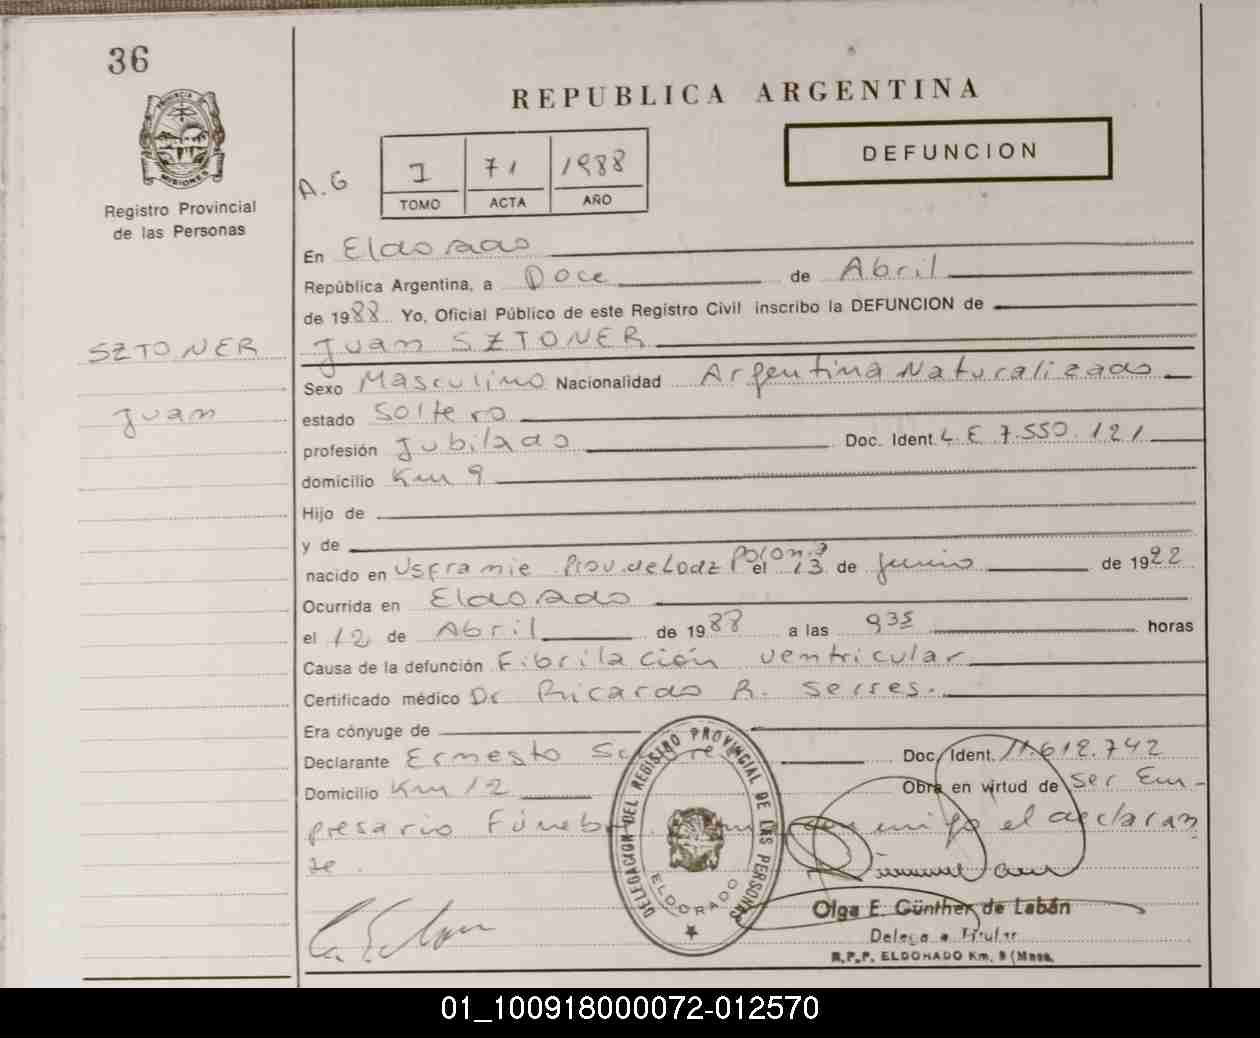 36
PROVINCIA DE
MISIONES
Registro Provincial
de las Personas
REPUBLICA ARGENTINA
DEFUNCION
A.G
I 71 1988
TOMO ACTA AÑO
En Eldorado
República Argentina, a Doce de Abril
de 1988 Yo, Oficial Público de este Registro Civil inscribo la DEFUNCION de
SZTONER
Juan SZTONER
Sexo Masculino Nacionalidad Argentina Naturalizado
Juan
estado Soltero
profesión Jubilado Doc. Ident. L E 7.550.121
domicilio Km 9
Hijo de
y de
nacido en Prov. de Lodz Polonia el 13 de Junio de 1922
Ocurrida en Eldorado
el 12 de Abril de 1988 a las 9 35 horas
Causa de la defunción Fibrilación ventricular
Certificado médico Dr Ricardo R. Serres.
Era cónyuge de
Declarante Ernesto Doc. Ident. 11.612.742
Domicilio Km 12 Obra en virtud de ser Em-
presario Fúneb conmigo el declaran
te.
DELEGACION DEL REGISTRO PROVINCIAL DE LAS PERSONAS
ELDORADO
Olga E. Günther de Labán
Delegada Titular
R.P.P. ELDORADO Km. 9 (Mnes.
01_100918000072-012570